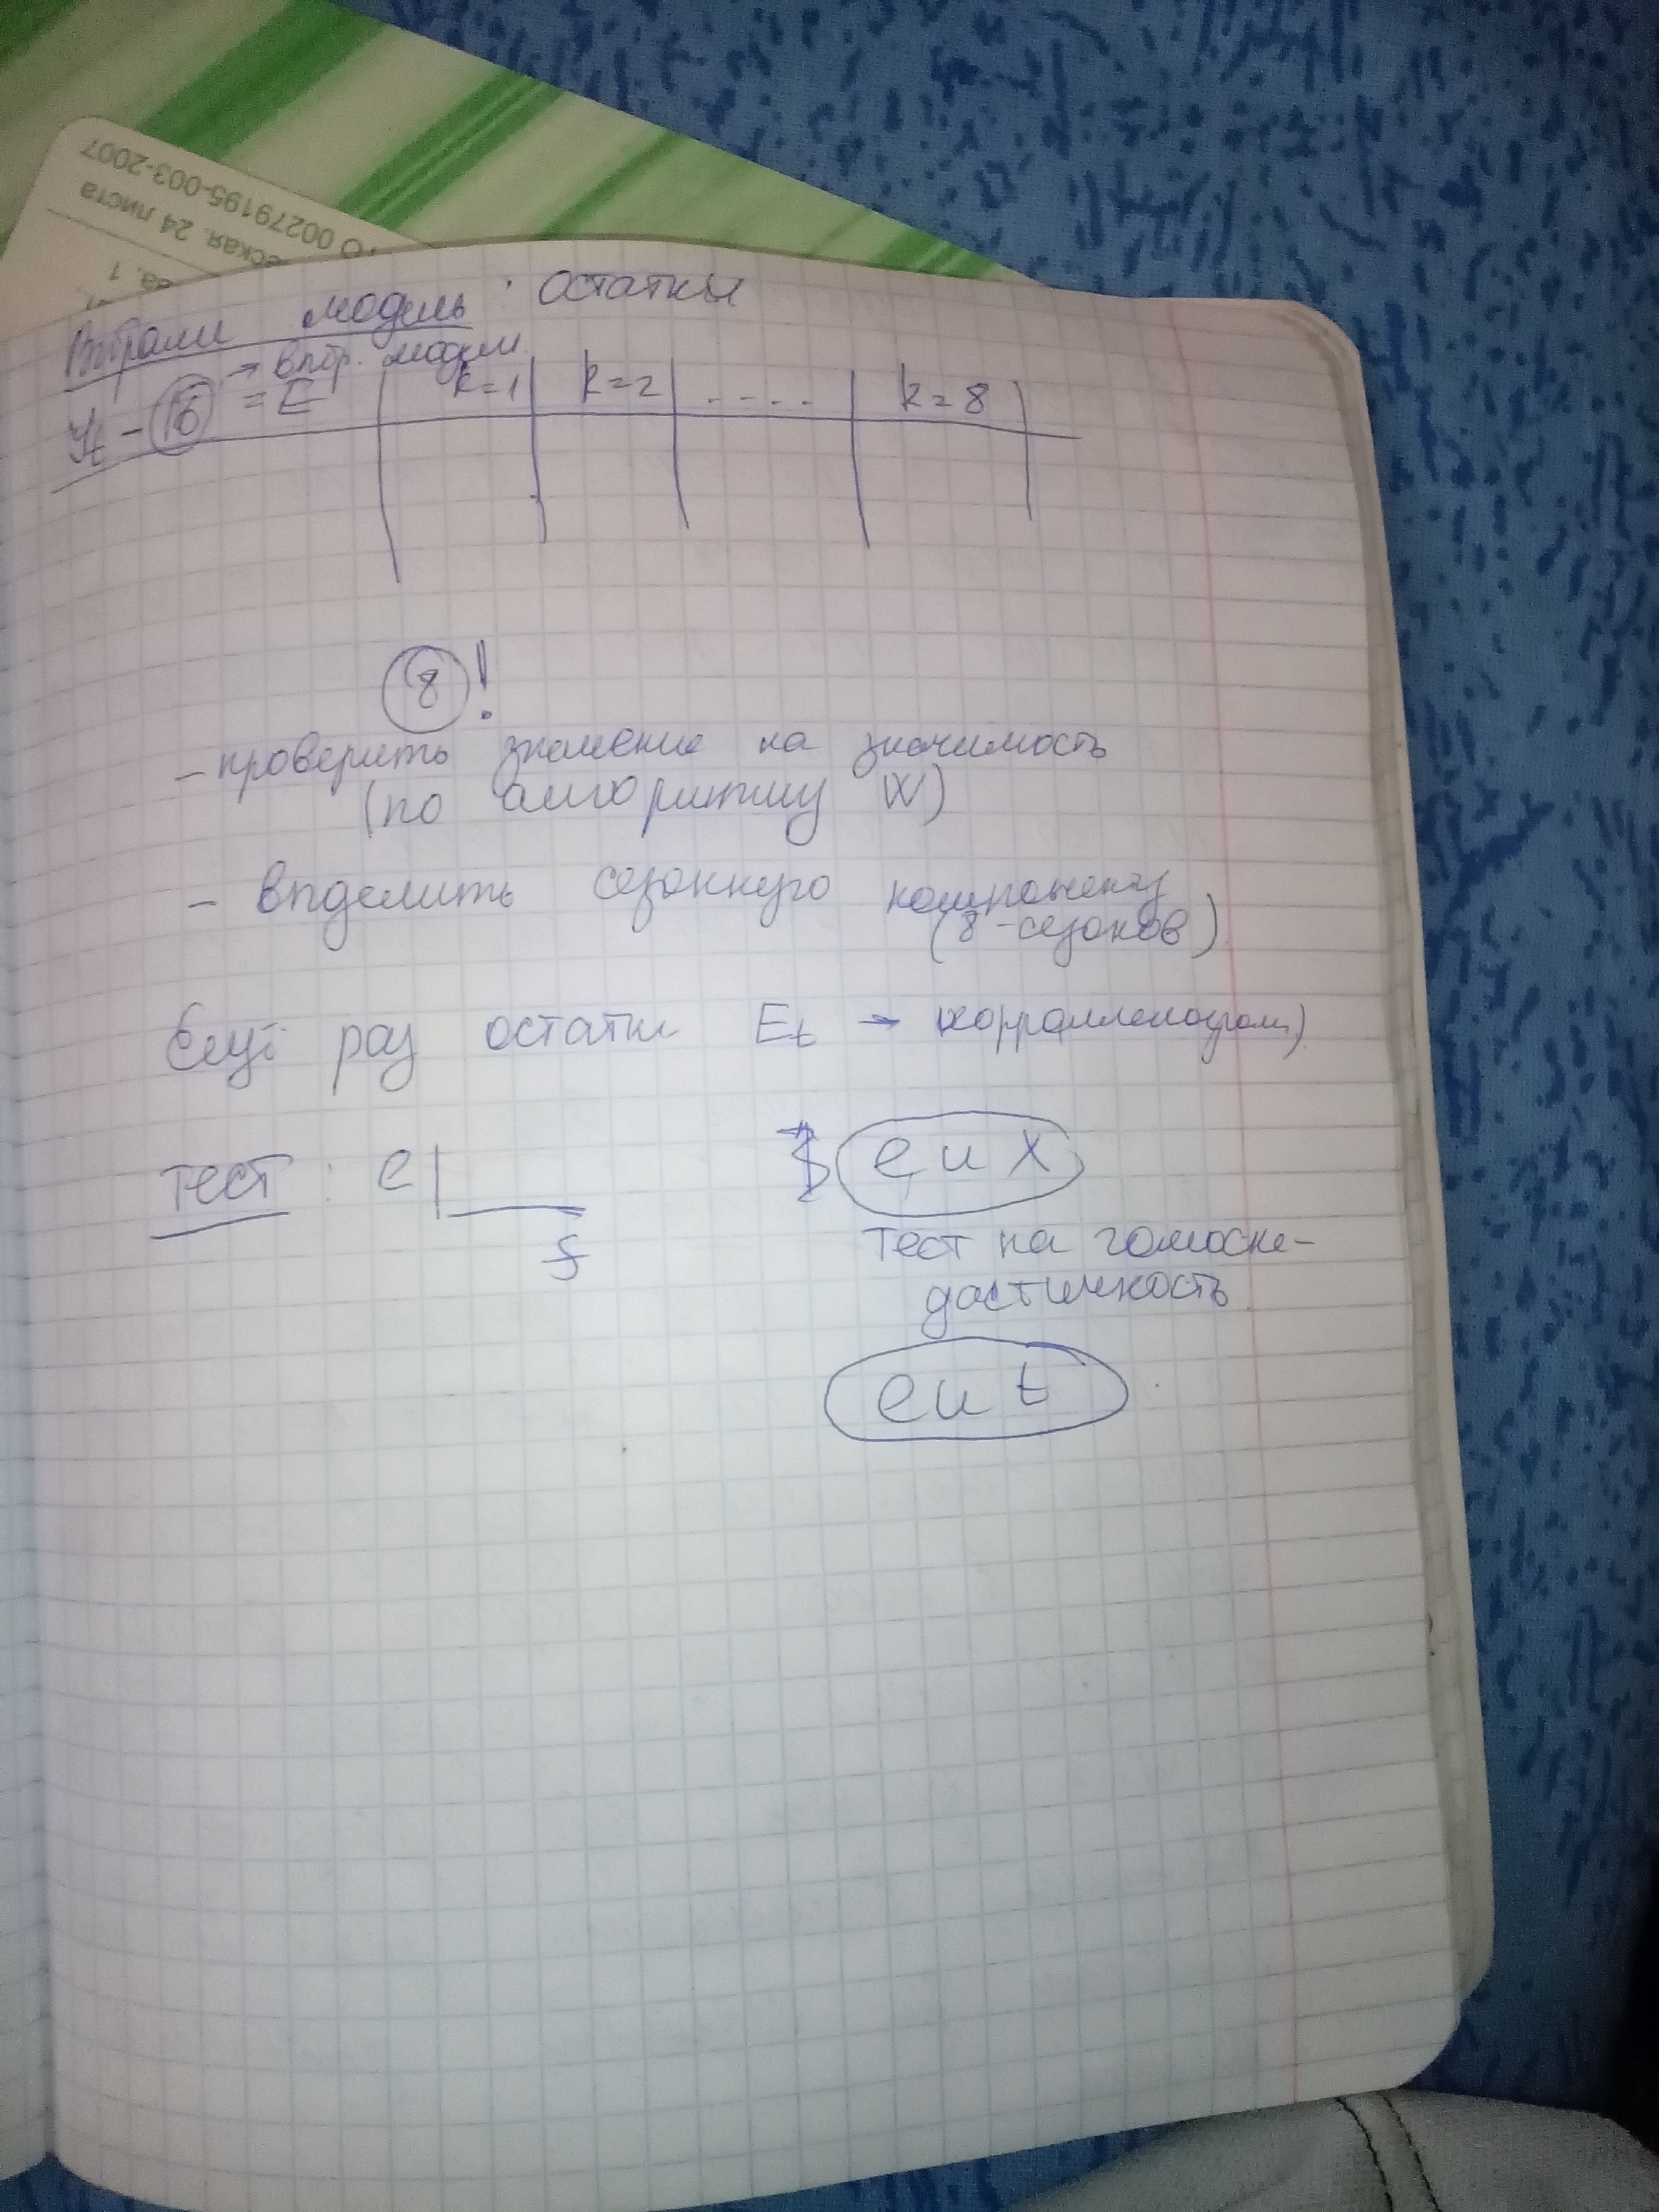 ТО 00279195-003-2007
еская. 24 листа
ва, 1
Выбрали модель: остатки
→ выбр. модели
yt - 16 = E k=1 k=2 .... k=8
8 !
- проверить значение на значимость
(по алгоритму W)
- выделить сезонную компоненту
(8-сезонов)
Ещё раз остатки Et → (корраллелограм)
тест: e
e и X
f
тест на гомоске-
дастичность
e и t